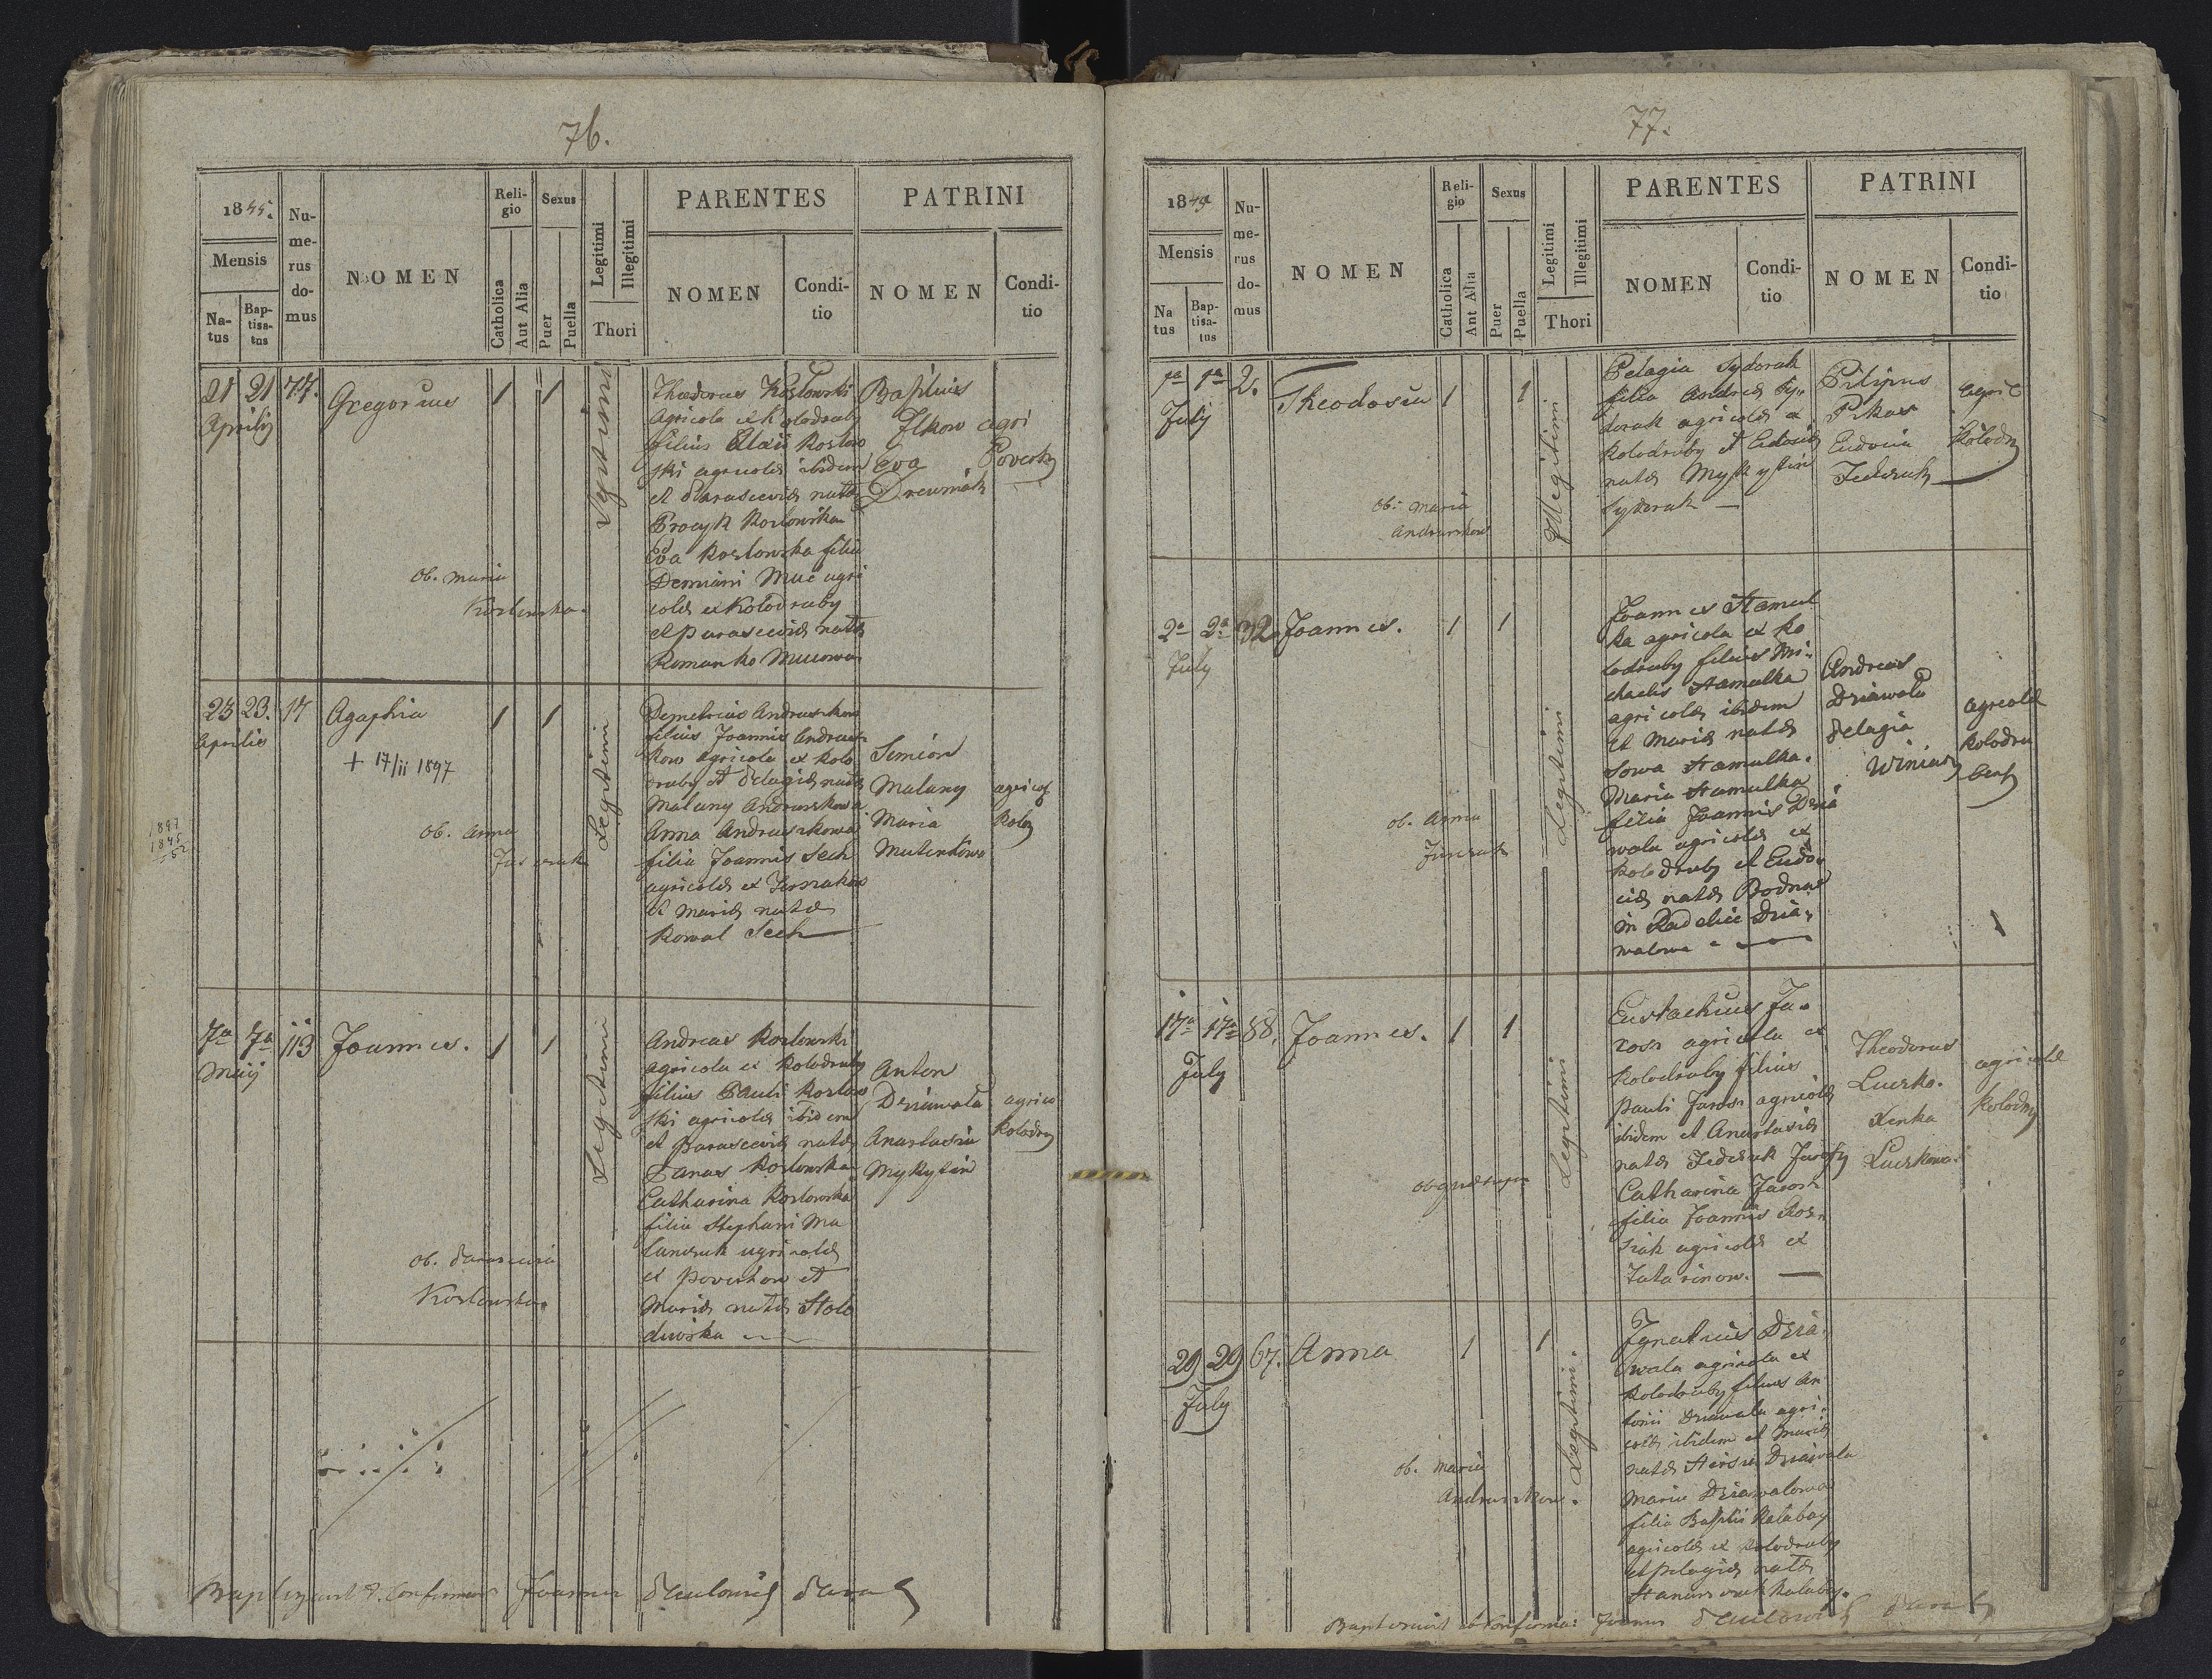 76.
1845.
Mensis
Na-
tus
Bap-
tisa-
tus
Nu-
me-
rus
do-
mus
NOMEN
Reli-
gio
Catholica
Aut Alia
Sexus
Puer
Puella
Legitimi
Illegitimi
Thori
PARENTES
NOMEN
Condi-
tio
PATRINI
NOMEN
Condi-
tio
21 21 77. Gregorius 1 1
Aprilis
Theodorus Kozlowski
Agricola ex Kolodruby
filius Eliaii Kozlow
ski agricolæ ibidem
et Parasceviæ natæ
Procyk Kozlowska
Eva Kozlowska filia
Demiani Muc agri
colæ ex Kolodruby
et Parasceviæ natæ
Romanko Mucowa
Basilius
Ilkow agri
Eva
ob. Maria
Kozlowska.
23 23. 17 Agaphia 1 1
Aprilis
+ 17/ii 1897
1897
1845
52
ob. Anna
Legitimi
Demetrius Andruszkow
filius Joannis Andrusz
kow agricola ex Kolo
druby et Pelagiæ natæ
Malany Andruszkowa
Anna Andruszkowa
filia Joannis Sech
agricolæ ex
et Mariæ natæ
Kowal Sech
Simion
Malany
Maria
agricol
Kolo
7a 7a 113 Joannes. 1 1
Maij
Legitimi
Andreas Kozlowski
agricola ex Kolodruby
filius Pauli Kozlow
ski agricolæ ibidem
et Parasceviæ natæ
Panas Kozlowska
Catharina Kozlowska
filia Stephani Ma
lanczuk agricolæ
ex Powerchow et
Mariæ natæ
Anton
Dziawala
Anastasia
Mykytin
agrico
Kolodru
ob. Parascevia
Kozlowska.
Baptizavit & Confirmavit Joannes
77.
1845
Mensis
Na
tus
Bap-
tisa-
tus
Nu-
me-
rus
do-
mus
NOMEN
Reli-
gio
Catholica
Ant Alia
Sexus
Puer
Puella
Legitimi
Illegitimi
Thori
PARENTES
NOMEN
Condi-
tio
PATRINI
NOMEN
Condi-
tio
1a 1a 2. Theodosia 1 1
July
Illegitimi
Pelagia Sydorak
filia Andreæ Sy-
dorak agricolæ ex
Kolodruby et Eudociæ
natæ Mykytin
Sydorak
Pilipus
Eudocia
agric
Kolodru
ob: Maria
Andruszkow
2a 2a 32 Joannes. 1 1
July
Legitimi
Joannes Hamul
ka agricola ex Ko
lodruby filius Mi-
chaelis Hamulka
agricolæ ibidem
et Mariæ natæ
Sowa Hamulka.
Maria Hamulka
filia Joannis Dzia
wala agricolæ ex
Kolodruby et Eudo-
ciæ natæ Bodnar
in Radelicz Dzia-
walowa
Andreas
Dziawala
Pelagia
agricolæ
Kolodru
ob. Anna
17a 17a 88. Joannes. 1 1
July
Legitimi
Eustachius Ja-
rosz agricola ex
Kolodruby filius
Pauli Jarosz agricolæ
ibidem et Anastasiæ
natæ Fedczuk Jaroszy
Catharina Jarosz
filia Joannis
agricolæ ex
Tatarinow.
Theodorus
Luczko.
Xenka
Luczkowa.
agricolæ
Kolodru
29 29 67. Anna 1 1
July
Legitimi.
Ignatius Dzia-
wala agricola ex
Kolodruby filius An
tonii Dziawala agri-
colæ ibidem et Mariæ
natæ Dziawala
Maria Dziawalowa
filia Basilii Kalabay
agricolæ ex Kolodruby
et Pelagiæ natæ
ob. Maria
Andruszkow.
Baptizavit et Confirma: Joannes